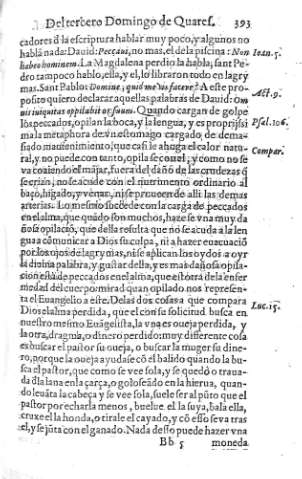 Del tercero Domingo de Quares. 393
cadores d la escriptura hablar muy poco, y algunos no
hablã nada: Dauid: Peccaui, no mas, el de la piscina: Non
habeo hominem. La Magdalena perdio la habla, sant Pe-
dro tampoco hablo, ella, y el, lo libraron todo en lagry
mas. Sant Pablo: Domine, quid me vis facere? A este pro-
posito quiero declarar aquellas palabras de Dauid: Om
nis iniquitas oppilabit os suum. Quando cargan de golpe
los peccados, opilan la boca, y la lengua, y es propriissi
ma la metaphora de vn estomago cargado, de dema-
siado mantenimiento, que casi le ahoga el calor natu-
ral, y no puede con tanto, opila se con el; y como no se
va coziendo el májar, fuera del daño de las crudezas q̃
se crian, no se acude con el nutrimento ordinario al
baço, higado, y venas, ni se proueen de alli las demas
arterias. Lo mesmo succede con la carga de peccados
en el alma, que quãdo son muchos, haze se vna muy da
ñosa opilació, que della resulta que no se acuda a la len
gua a comunicar a Dios su culpa, ni a hazer euacuació
por los ojos de lagrymas, ni se aplican los oydos a oyr
la diuina palabra, y gustar della, y es mas dañosa opila-
cion esta de peccados en el alma, que estotra de la enfer
medad del cuerpo
ta el Euangelio a este. De las dos cosas a que compara
Dios el alma perdida, que el con su solicitud busca en
nuestro mesmo Euãgelista, la vna es oueja perdida, y
la otra, dragma, o dinero perdido: muy differente cosa
es buscar el pastor su oueja, o buscar la muger su dine-
ro, porque la oueja ayuda se cõ el balido quando la bu-
sca el pastor, que como se vee sola, y se quedó o traua-
da d la lana en la çarça, o goloseãdo en la hierua, quan-
do leuãta la cabeça y se vee sola, suele ser al pũto que el
pastor por echarla menos, buelue el la suya, bala ella,
cruxe el la honda, o tirale el cayado, y cõ esso se va tras
el, y se jũta con el ganado. Nada desso puede hazer vna
Bb 5 moneda
Ioan. 5.
Act. 9.
Psal. 106.
Compar.
Luc. 15.